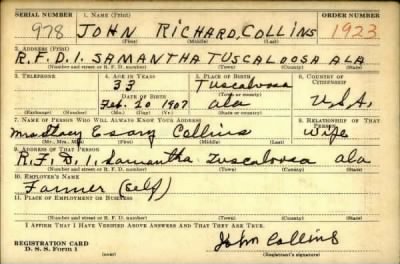 SERIAL NUMBER 1. NAME (Print) ORDER NUMBER
978 JOHN RICHARD COLLINS 1923
(First) (Middle) (Last)
2. ADDRESS (Print)
R.F.D.1. SAMANTHA TUSCALOOSA ALA
(Number and street or R. F. D. number) (Town) (County) (State)
3. TELEPHONE 4. AGE IN YEARS 5. PLACE OF BIRTH 6. COUNTRY OF CITIZENSHIP
33 Tuscaloosa
DATE OF BIRTH (Town or county)
Feb. 10 1907 ala U.S.A.
(Exchange) (Number) (Mo.) (Day) (Yr.) (State or country)
7. NAME OF PERSON WHO WILL ALWAYS KNOW YOUR ADDRESS 8. RELATIONSHIP OF THAT PERSON
Mrs Collins wife
(Mr., Mrs., Miss) (First) (Middle) (Last)
9. ADDRESS OF THAT PERSON
R.F.D.1. Samantha Tuscaloosa ala
(Number and street or R. F. D. number) (Town) (County) (State)
10. EMPLOYER'S NAME
Farmer (self)
11. PLACE OF EMPLOYMENT OR BUSINESS
(Number and street or R. F. D. number) (Town) (County) (State)
I AFFIRM THAT I HAVE VERIFIED ABOVE ANSWERS AND THAT THEY ARE TRUE.
REGISTRATION CARD John Collins
D. S. S. Form 1 (Registrant's signature)